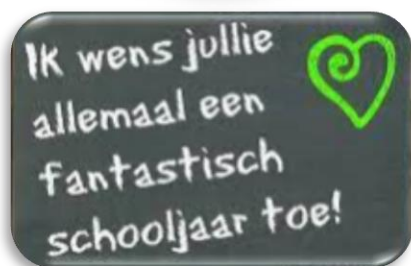 Ik wens jullie
allemaal een
fantastisch
schooljaar toe!